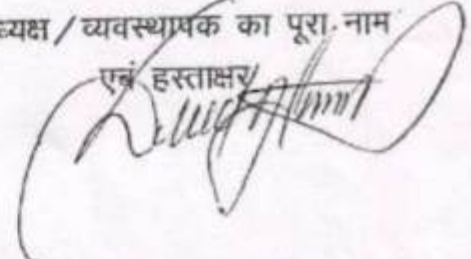 ध्यक्ष / व्यवस्थापक का पूरा नाम
एवं हस्ताक्षर